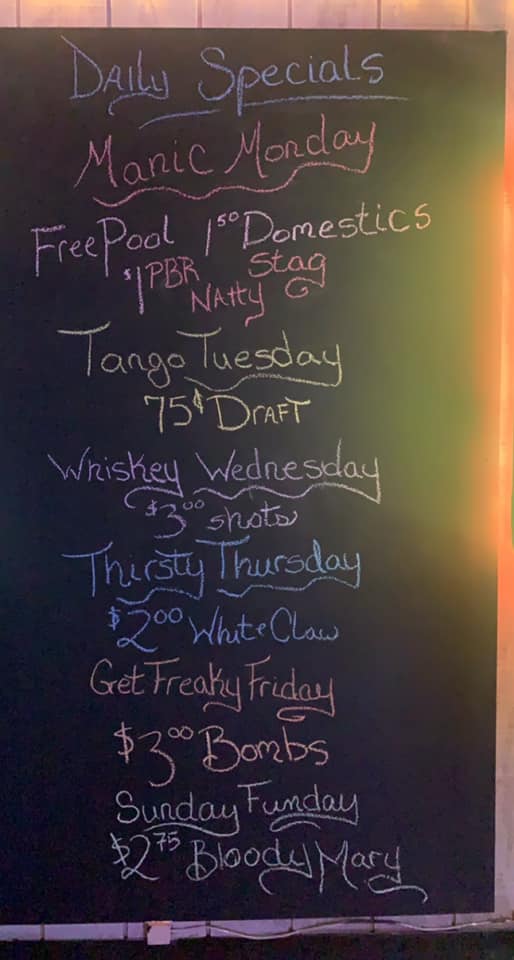 Daily Specials
Manic Monday
Free Pool 1.50 Domestics
$1 PBR Stag
Natty
Tango Tuesday
75¢ Draft
Whiskey Wednesday
$3.00 shots
Thirsty Thursday
$2.00 White Claw
Get Freaky Friday
$3.00 Bombs
Sunday Funday
$2.75 Bloody Mary